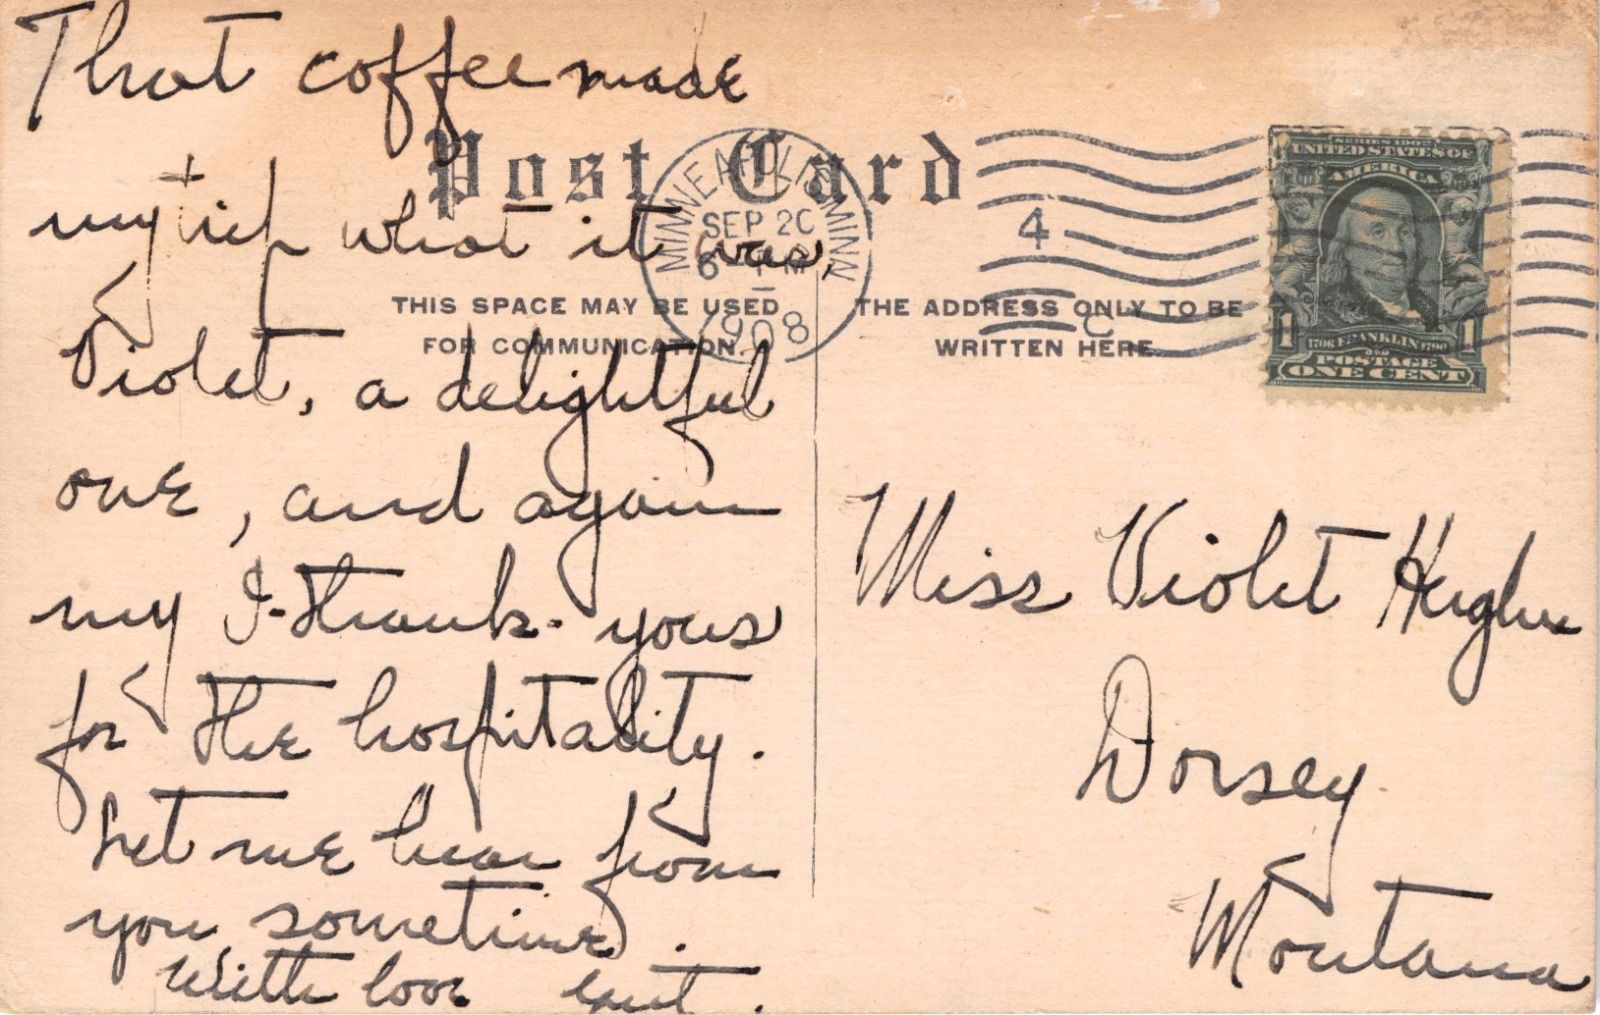 That coffee made
my trip what it was,
Violet, a delightful
one, and again
my I-thank-yous
for the hospitality.
Let me hear from
you sometime.
With love
Post Card
THIS SPACE MAY BE USED
FOR COMMUNICATION.
MINNEAPOLIS, MINN
SEP 20
6 - PM
1908
4
THE ADDRESS ONLY TO BE
WRITTEN HERE.
SERIES 1902
UNITED STATES OF
AMERICA
1 1
1706 FRANKLIN 1790
POSTAGE
ONE CENT
Miss Violet
Dorsey
Montana